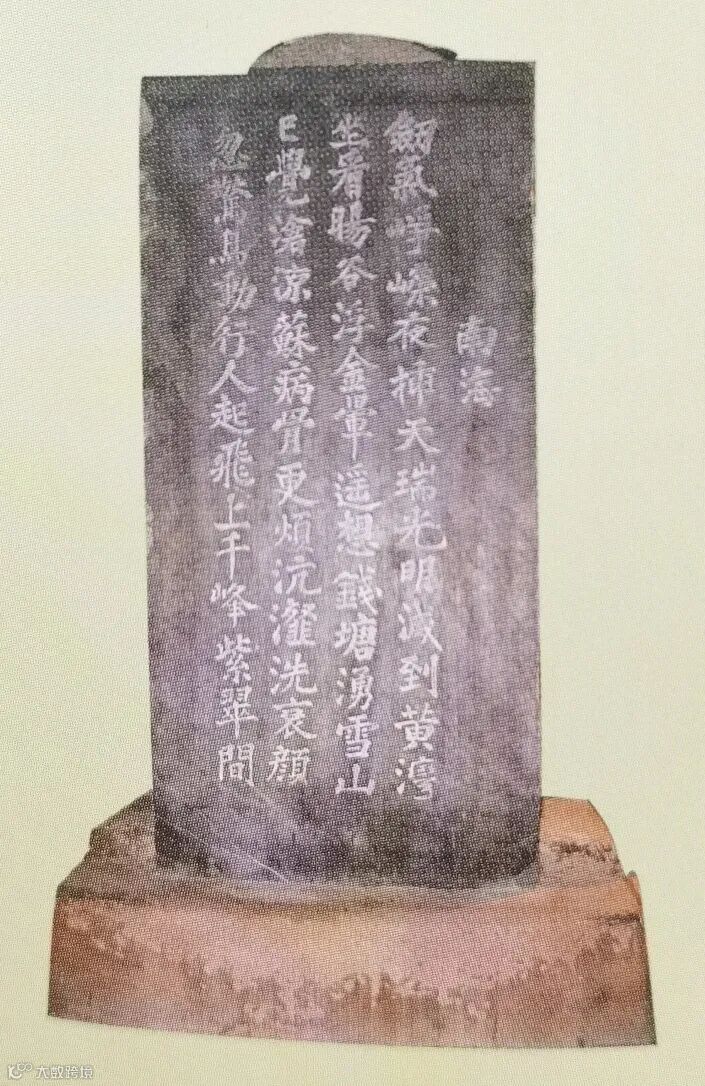 南海
釼氣崢嶸夜揷天瑞光明滅到黄灣
坐看暘谷浮金暈遥想錢塘湧雪山
已覺滄涼蘇病骨更煩沆瀣洗衰顔
忽驚鳥動行人起飛上千峰紫翠間
大数跨境